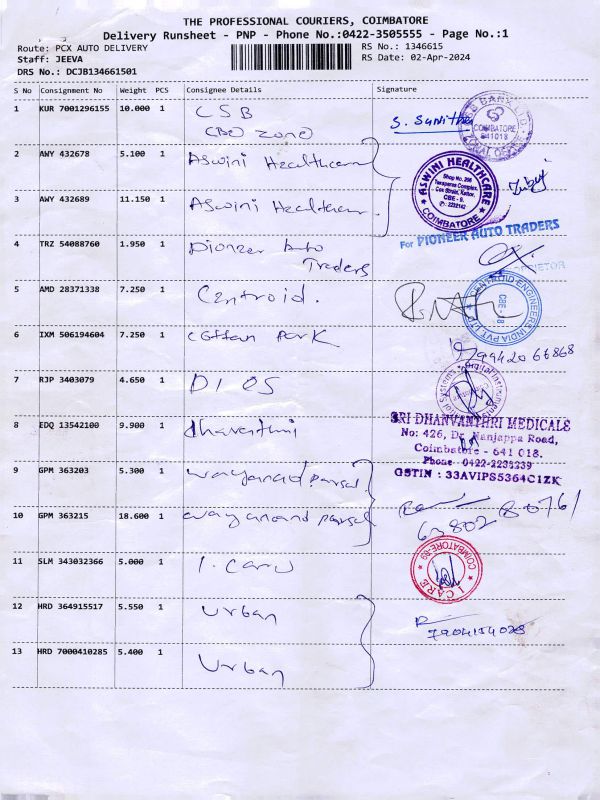 THE PROFESSIONAL COURIERS, COIMBATORE
Delivery Runsheet - PNP - Phone No.:0422-3505555 - Page No.:1
Route: PCX AUTO DELIVERY
RS No.: 1346615
Staff: JEEVA
RS Date: 02-Apr-2024
DRS No.: DCJB134661501
S No Consignment No Weight PCS Consignee Details Signature
1 KUR 7001296155 10.000 1 CSB
S. Sumitha
COIMBATORE
641018
2 AWY 432678 5.100 1 Aswini Healthcare
ASWINI HEALTHCARE
Shop No. 206
COIMBATORE
3 AWY 432689 11.150 1 Aswini Healthcare
4 TRZ 54088760 1.950 1 Pioneer Auto
Traders
For PIONEER AUTO TRADERS
PROPRIETOR
5 AMD 28371338 7.250 1 Centroid.
CENTROID ENGINEERS INDIA PVT LTD
6 IXM 506194604 7.250 1 Cotton Park
9942066868
7 RJP 3403079 4.650 1 DIOS
8 EDQ 13542100 9.900 1
SRI DHANVANTHRI MEDICALS
No: 426, Dr. Nanjappa Road,
Coimbatore - 641 018.
Phone 0422-2233239
GSTIN : 33AVIPS5364C1ZK
9 GPM 363203 5.300 1 wayanad parsel
10 GPM 363215 18.600 1 wayanand parsel
63802 80761
11 SLM 343032366 5.000 1 I. Care
I CARE
COIMBATORE-09
12 HRD 364915517 5.550 1 Urban
7904154028
13 HRD 7000410285 5.400 1 Urban